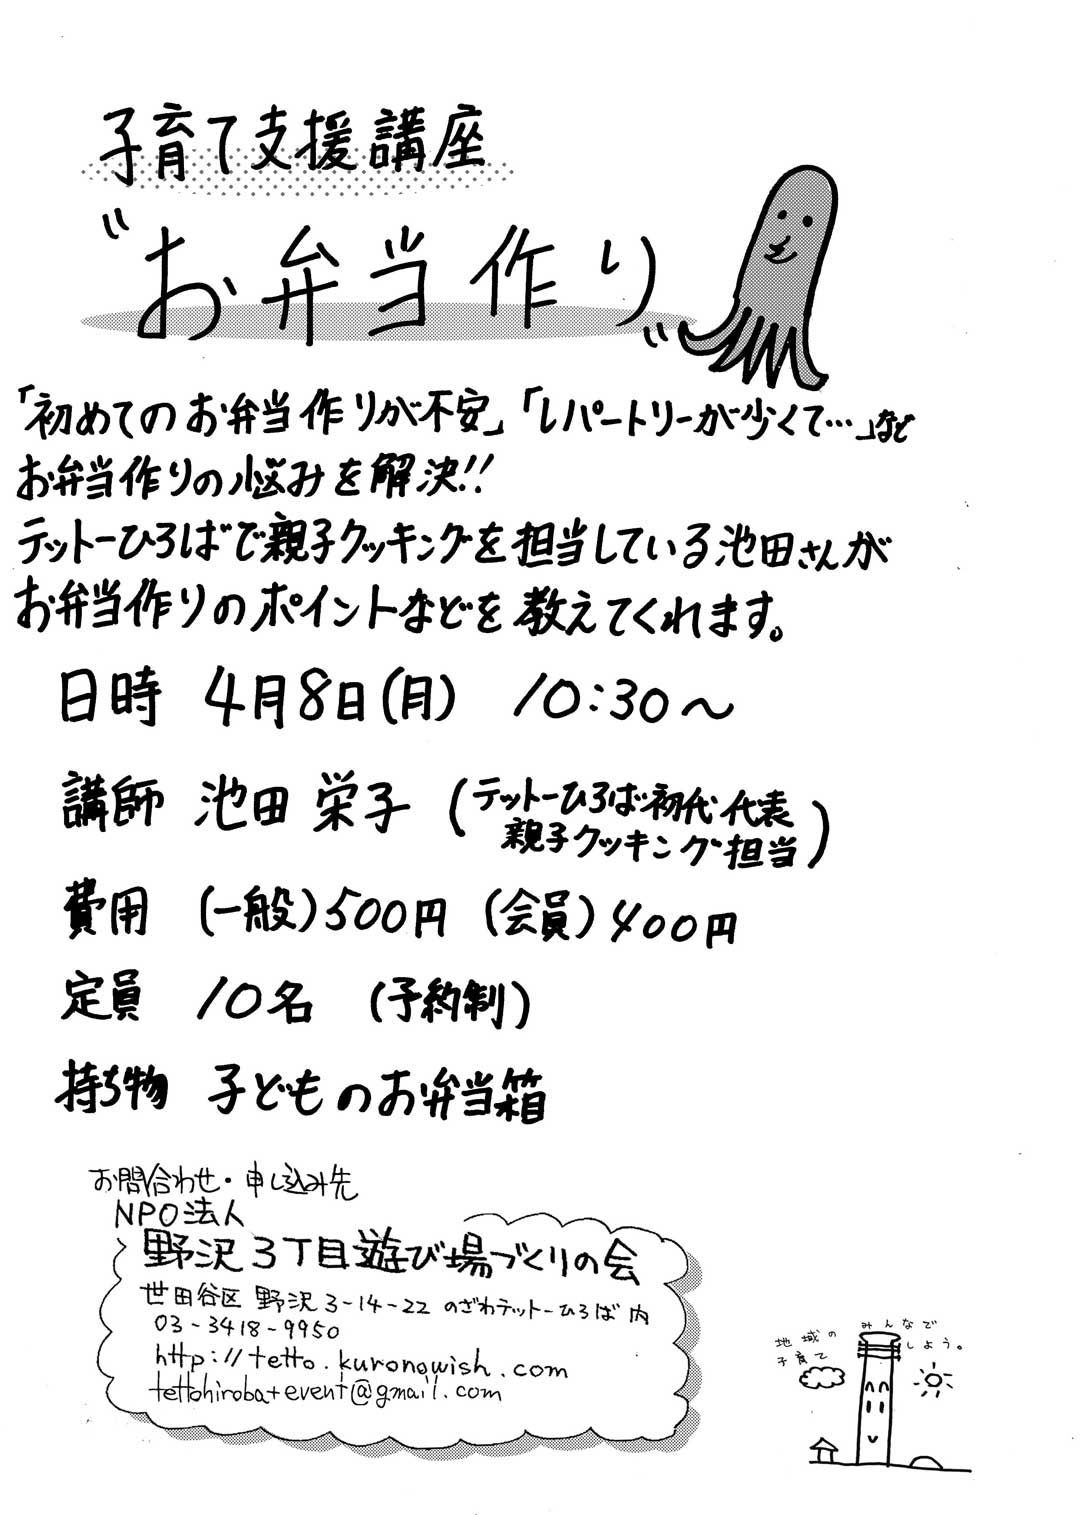 子育て支援講座
"お弁当作り"
「初めてのお弁当作りが不安」「レパートリーが少くて…」など
お弁当作りの悩みを解決!!
テットーひろばで親子クッキングを担当している池田さんが
お弁当作りのポイントなどを教えてくれます。
日時 4月8日(月) 10:30〜
講師 池田 栄子 (テットーひろば初代代表
親子クッキング担当)
費用 (一般)500円 (会員)400円
定員 10名 (予約制)
持ち物 子どものお弁当箱
お問合わせ・申し込み先
NPO法人
野沢3丁目遊び場づくりの会
世田谷区 野沢3-14-22 のざわテットーひろば内
03-3418-9950
http://tetto.kuronowish.com
tettohiroba+event@gmail.com
地域のみんなで
子育てしよう。